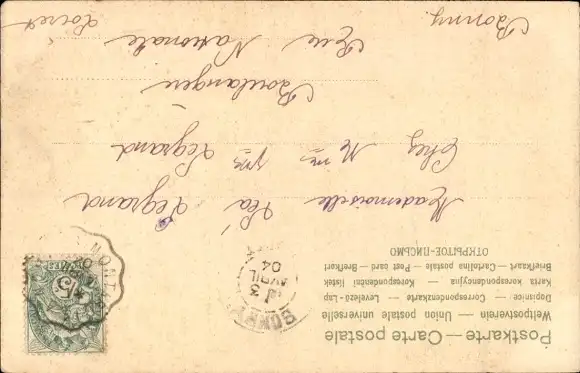 Postkarte — Carte postale
Weltpostverein — Union postale universelle
Dopisnice — Correspondenzkarte — Levelező-Lap
Karta korespondencyjna — Korespondenční lístek
Briefkaart — Cartolina postale — Post card Brefkort
ОТКРЫТОЕ-ПИСЬМО
BONNY
3
AVRIL
04
MONT
5
Mademoiselle Léa Legrand
Chez Mme Vve Legrand
Boulangère
Rue Nationale
Bonny
Loiret